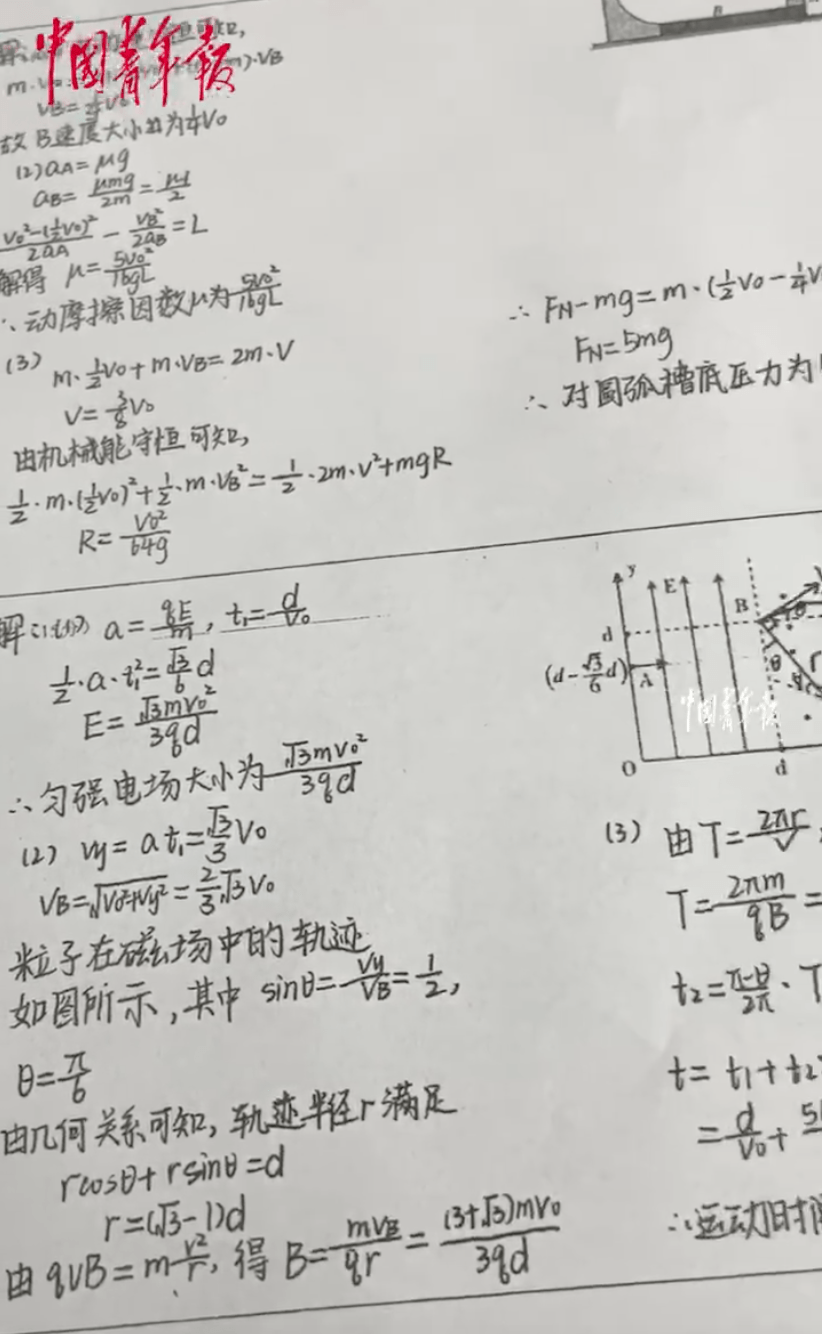 中国青年报
解:
m·V₀
·VB
VB=¼V₀
故B速度大小为¼V₀
(2) aA=μg
aB=μmg/2m=μg/2
(V₀²-(½V₀)²)/2aA - VB²/2aB=L
解得 μ=5V₀²/16gL
∴动摩擦因数μ为5V₀²/16gL
(3) m·½V₀+m·VB=2m·V
V=⅜V₀
由机械能守恒可知,
½·m·(½V₀)²+½·m·VB²=½·2m·V²+mgR
R=V₀²/64g
∴ FN-mg=m·(½V₀-¼V
FN=5mg
∴ 对圆弧槽底压力为
解:(1) a=qE/m, t₁=d/V₀
½·a·t₁²=√3/6 d
E=√3mV₀²/3qd
∴匀强电场大小为√3mV₀²/3qd
(2) Vy=at₁=√3/3 V₀
VB=√(V₀²+Vy²)=2/3 √3V₀
粒子在磁场中的轨迹
如图所示,其中 sinθ=Vy/VB=½,
θ=π/6
由几何关系可知,轨迹半径r满足
rcosθ+rsinθ=d
r=(√3-1)d
由qVB=mV²/r, 得 B=mVB/qr=(3+√3)mV₀/3qd
y
E
B
d
θ
(d-√3/6 d)
A
θ
r
中国青年报
O
d
(3) 由T=2πr/V
T=2πm/qB=
t₂=(π-θ)/2π·T
t=t₁+t₂
=d/V₀+
∴运动时间